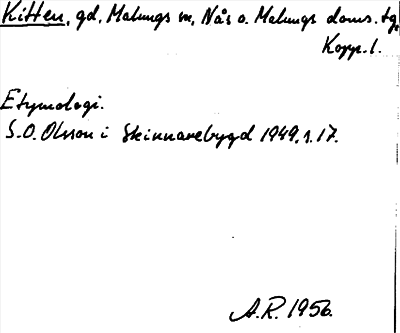 Kitten, gd, Malungs sn, Nås o. Malungs doms. tg.
Kopp. l.
Etymologi.
S.O. Olsson i Skinnarebygd 1949, s. 17.
A.R. 1956.